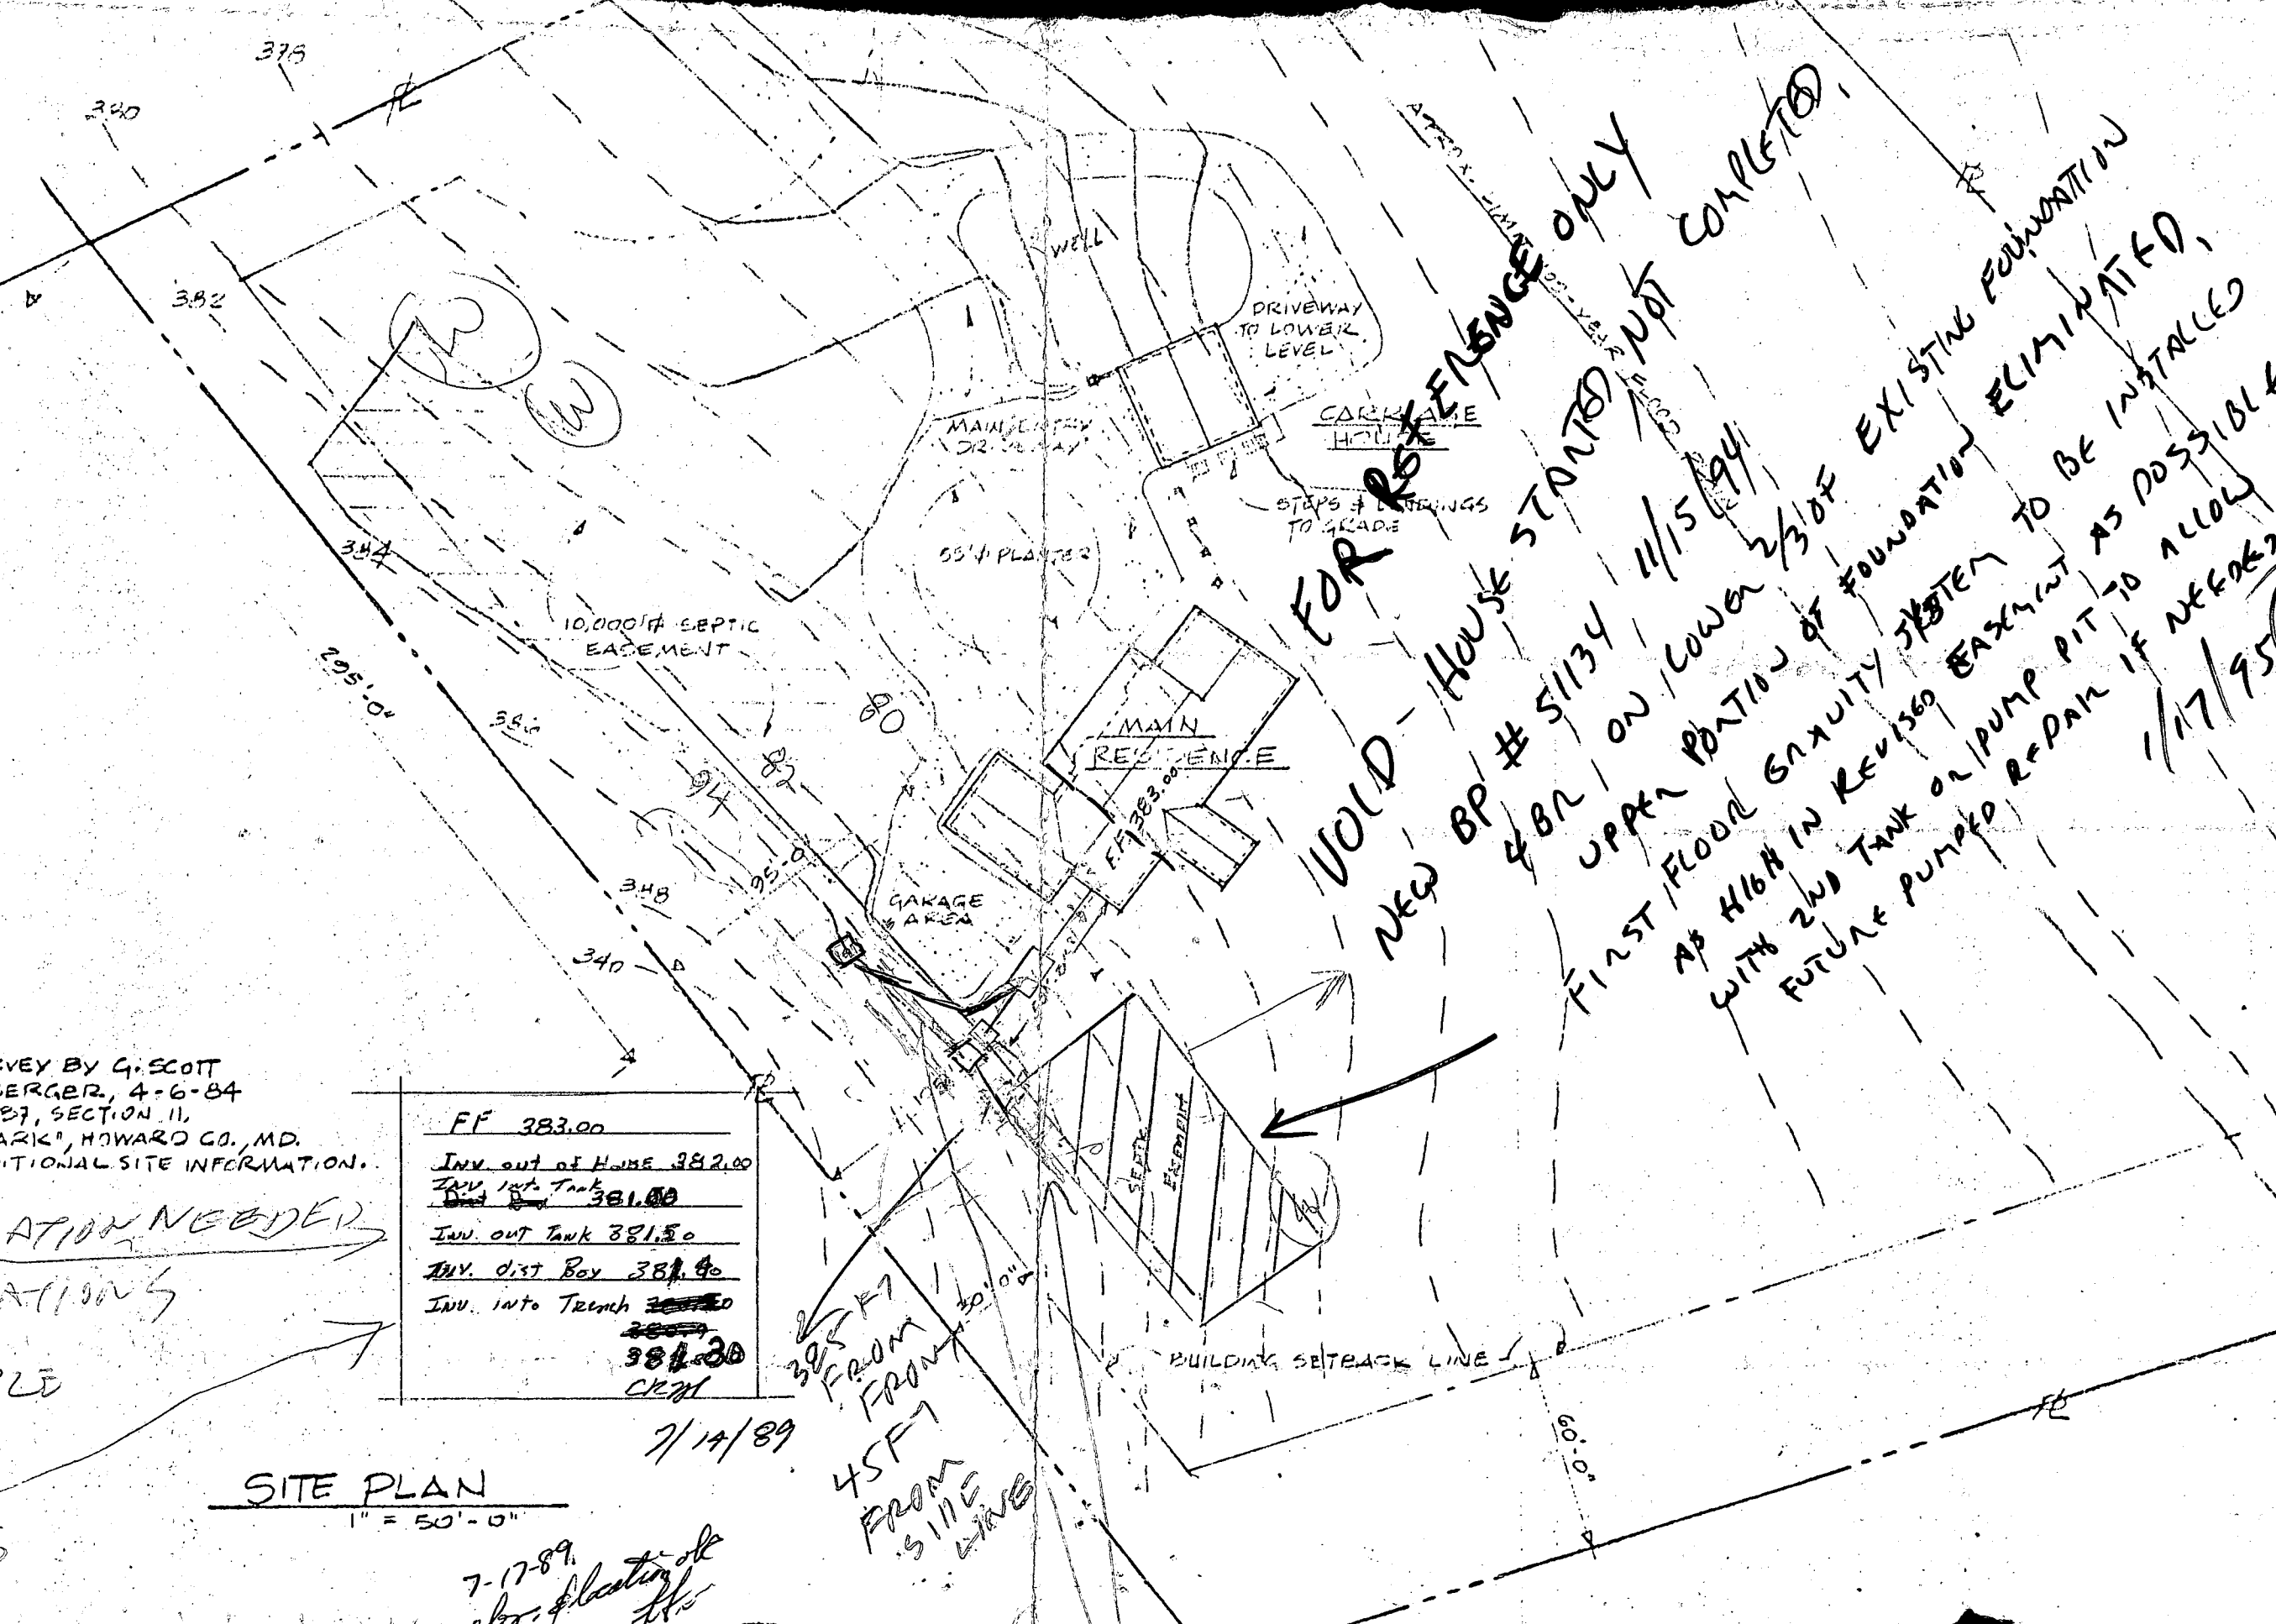 378
380
382
384
386
348
340
WELL
DRIVEWAY
TO LOWER
LEVEL
MAIN ENTRY
DRIVEWAY
CARRIAGE
HOUSE
STEPS & LANDINGS
TO GRADE
55'∅ PLANTER
10,000 SEPTIC
EASEMENT
295'-0"
80
82
84
MAIN
RESIDENCE
F.F. 383.00
35'-0
GARAGE
AREA
FOR REFERENCE ONLY
VOID - HOUSE STARTED NOT COMPLETED.
NEW BP # 51134 11/15/94
4 BR ON LOWER 2/3 OF EXISTING FOUNDATION
UPPER PORTION OF FOUNDATION ELIMINATED.
FIRST FLOOR GRAVITY SYSTEM TO BE INSTALLED
AS HIGH IN REVISED EASEMENT AS POSSIBLE
WITH 2ND TANK OR PUMP PIT TO ALLOW
FUTURE PUMPED REPAIR IF NEEDED
1/17/95
SEPTIC
Easement
VEY BY G. SCOTT
BERGER, 4-6-84
87, SECTION 11,
ARK", HOWARD CO., MD.
ITIONAL SITE INFORMATION.
ATION NEEDED
ATIONS
PLE
FF 383.00
INV. out of House 382.00
INV. into Tank
INV. out Tank 381.50
INV. dist Box 381.40
INV. into Trench
381.30
7/14/89
385 FT
FROM
FRONT
45 FT
FROM
SIDE
LINE
30'-0"
BUILDING SETBACK LINE
60'-0"
SITE PLAN
1" = 50'-0"
7-17-89
location ok